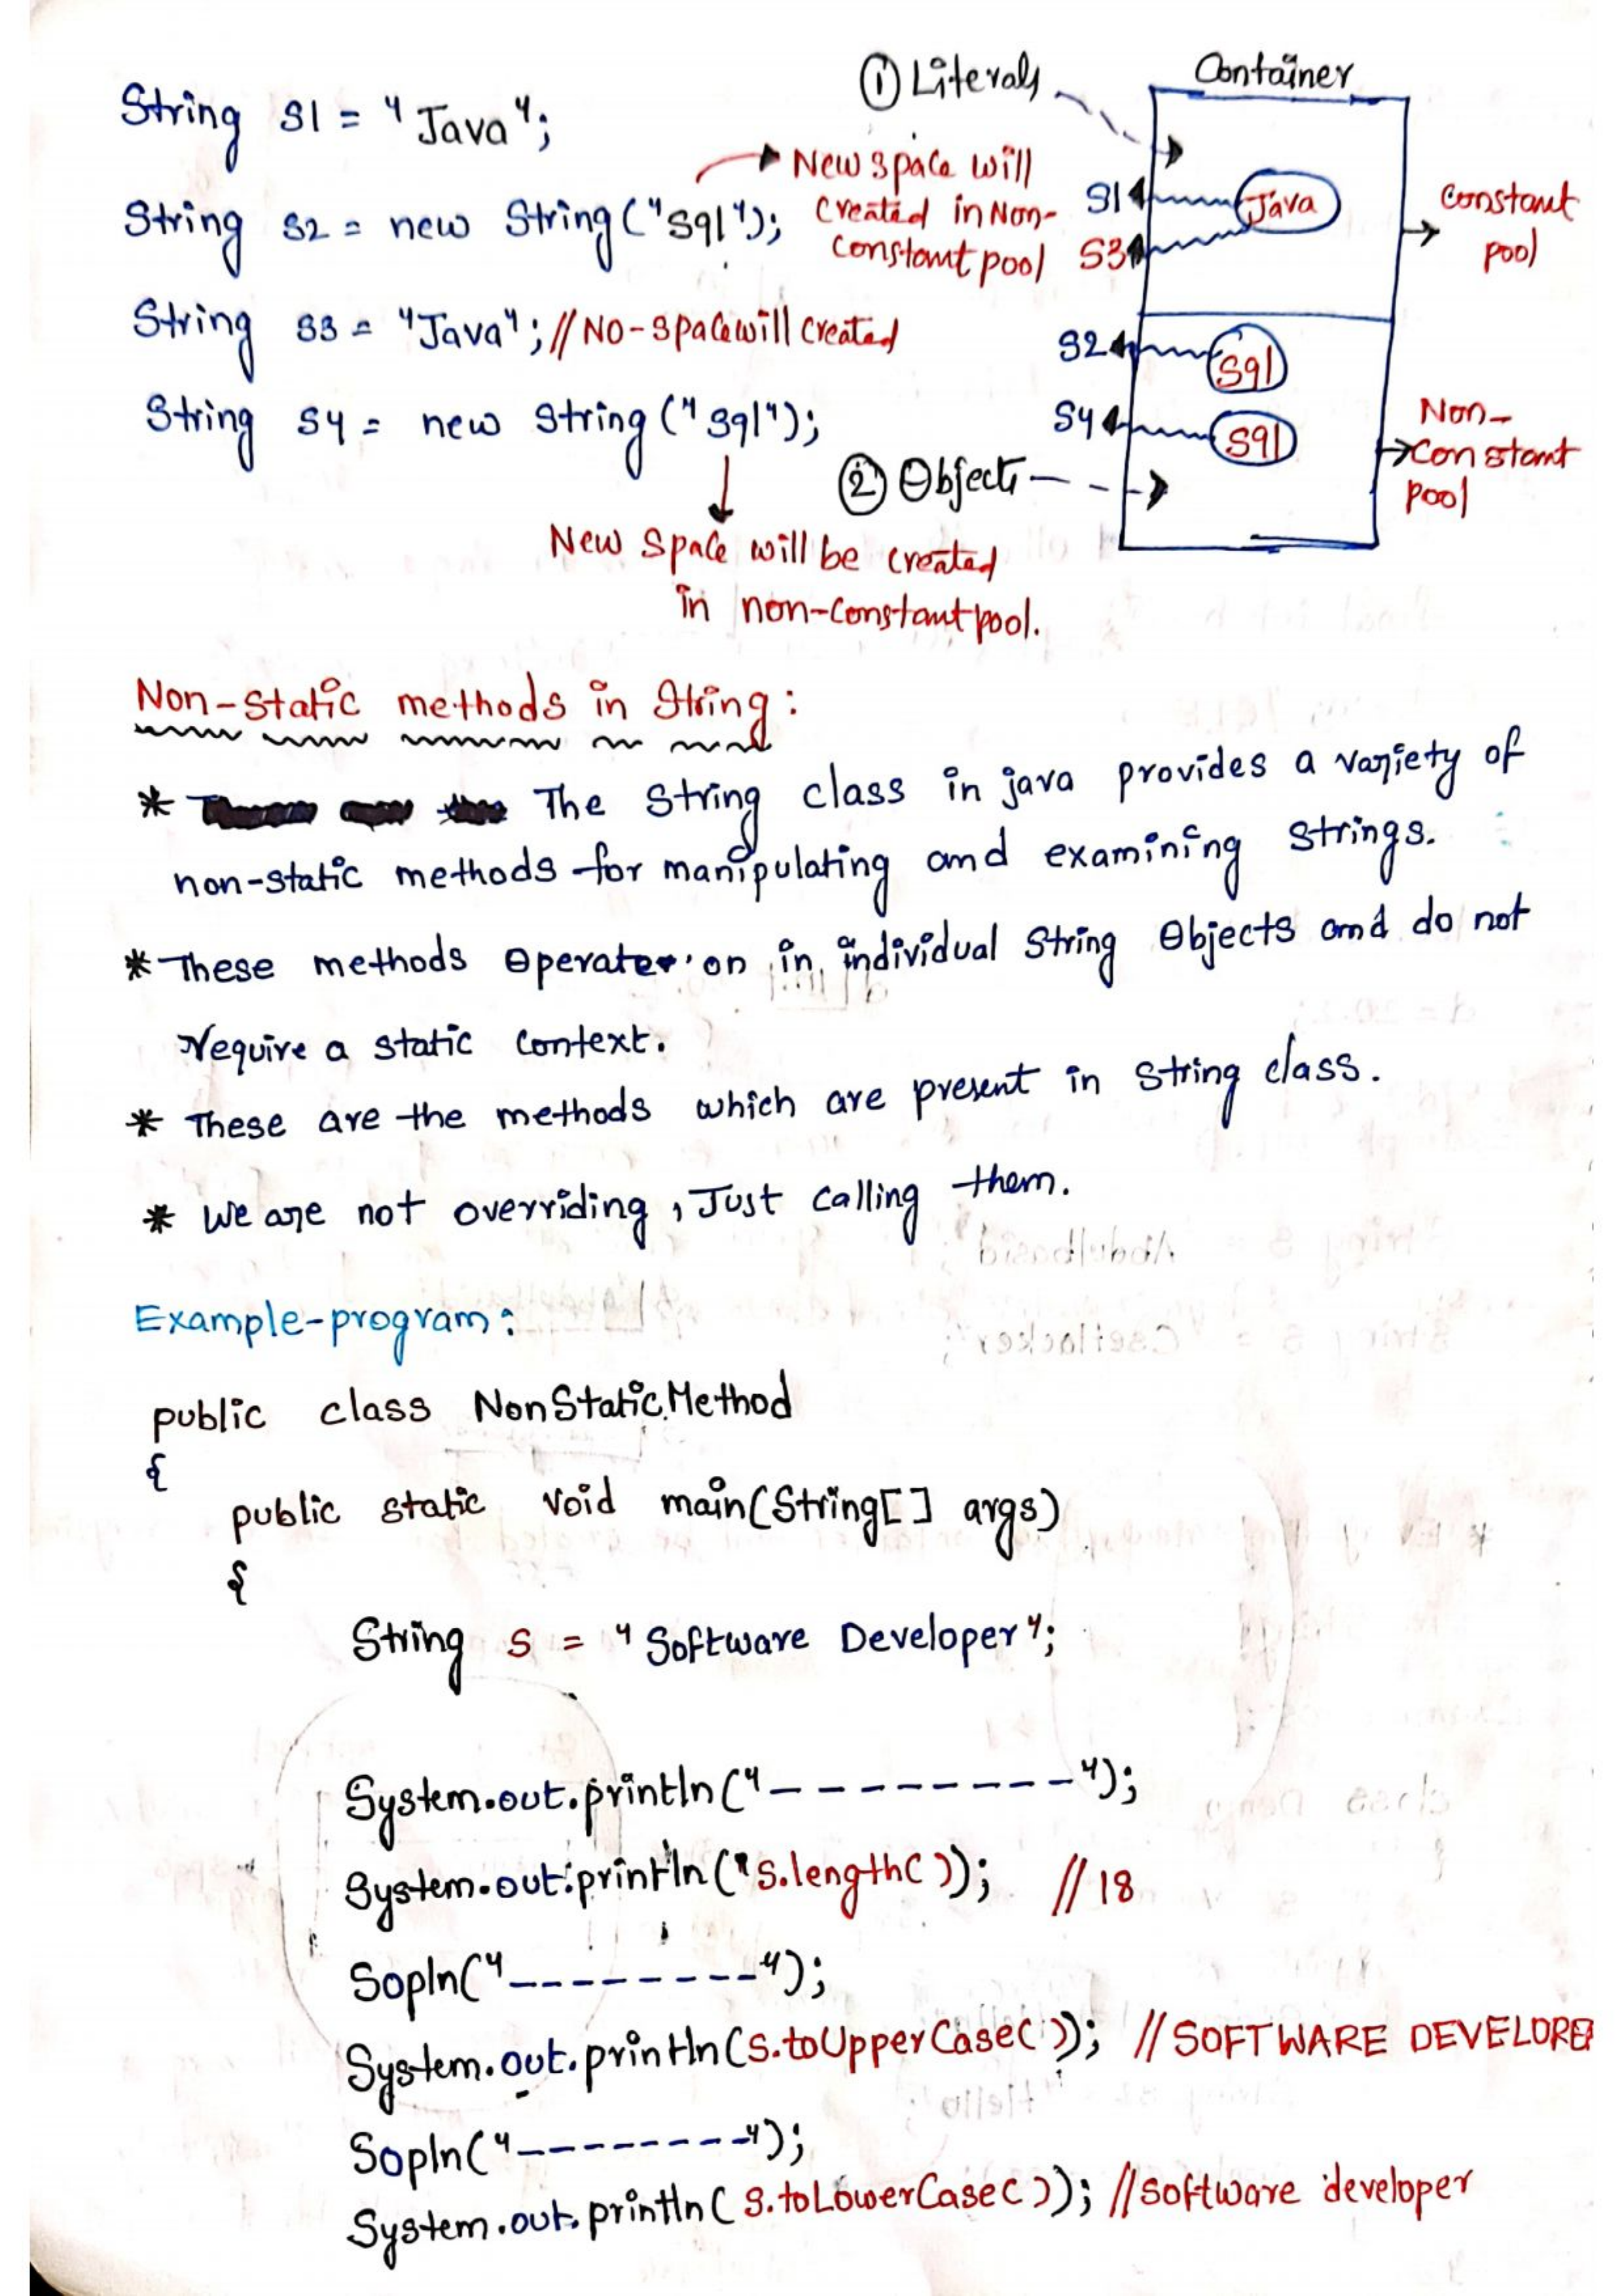 String S1 = "Java";
String S2 = new String("Sql");
New space will
Created in Non-
Constant pool
String S3 = "Java"; // NO-space will Created
String S4 = new String("Sql");
New Space will be created
in non-Constant pool.
① Literals
Container
S1
Java
S3
Constant
pool
S2
Sql
S4
Sql
② Objects
Non-
Constant
pool
Non-Static methods in String:
* The String class in java provides a variety of
non-static methods for manipulating and examining strings.
* These methods operate on in individual String Objects and do not
require a static context.
* These are the methods which are present in String class.
* We are not overriding, Just calling them.
Example-program:
public class NonStaticMethod
{
public static void main(String[] args)
{
String s = "Software Developer";
System.out.println("---------");
System.out.println(s.length()); //18
Sopln("---------");
System.out.println(s.toUpperCase()); //SOFTWARE DEVELOPER
Sopln("---------");
System.out.println(s.toLowerCase()); //software developer